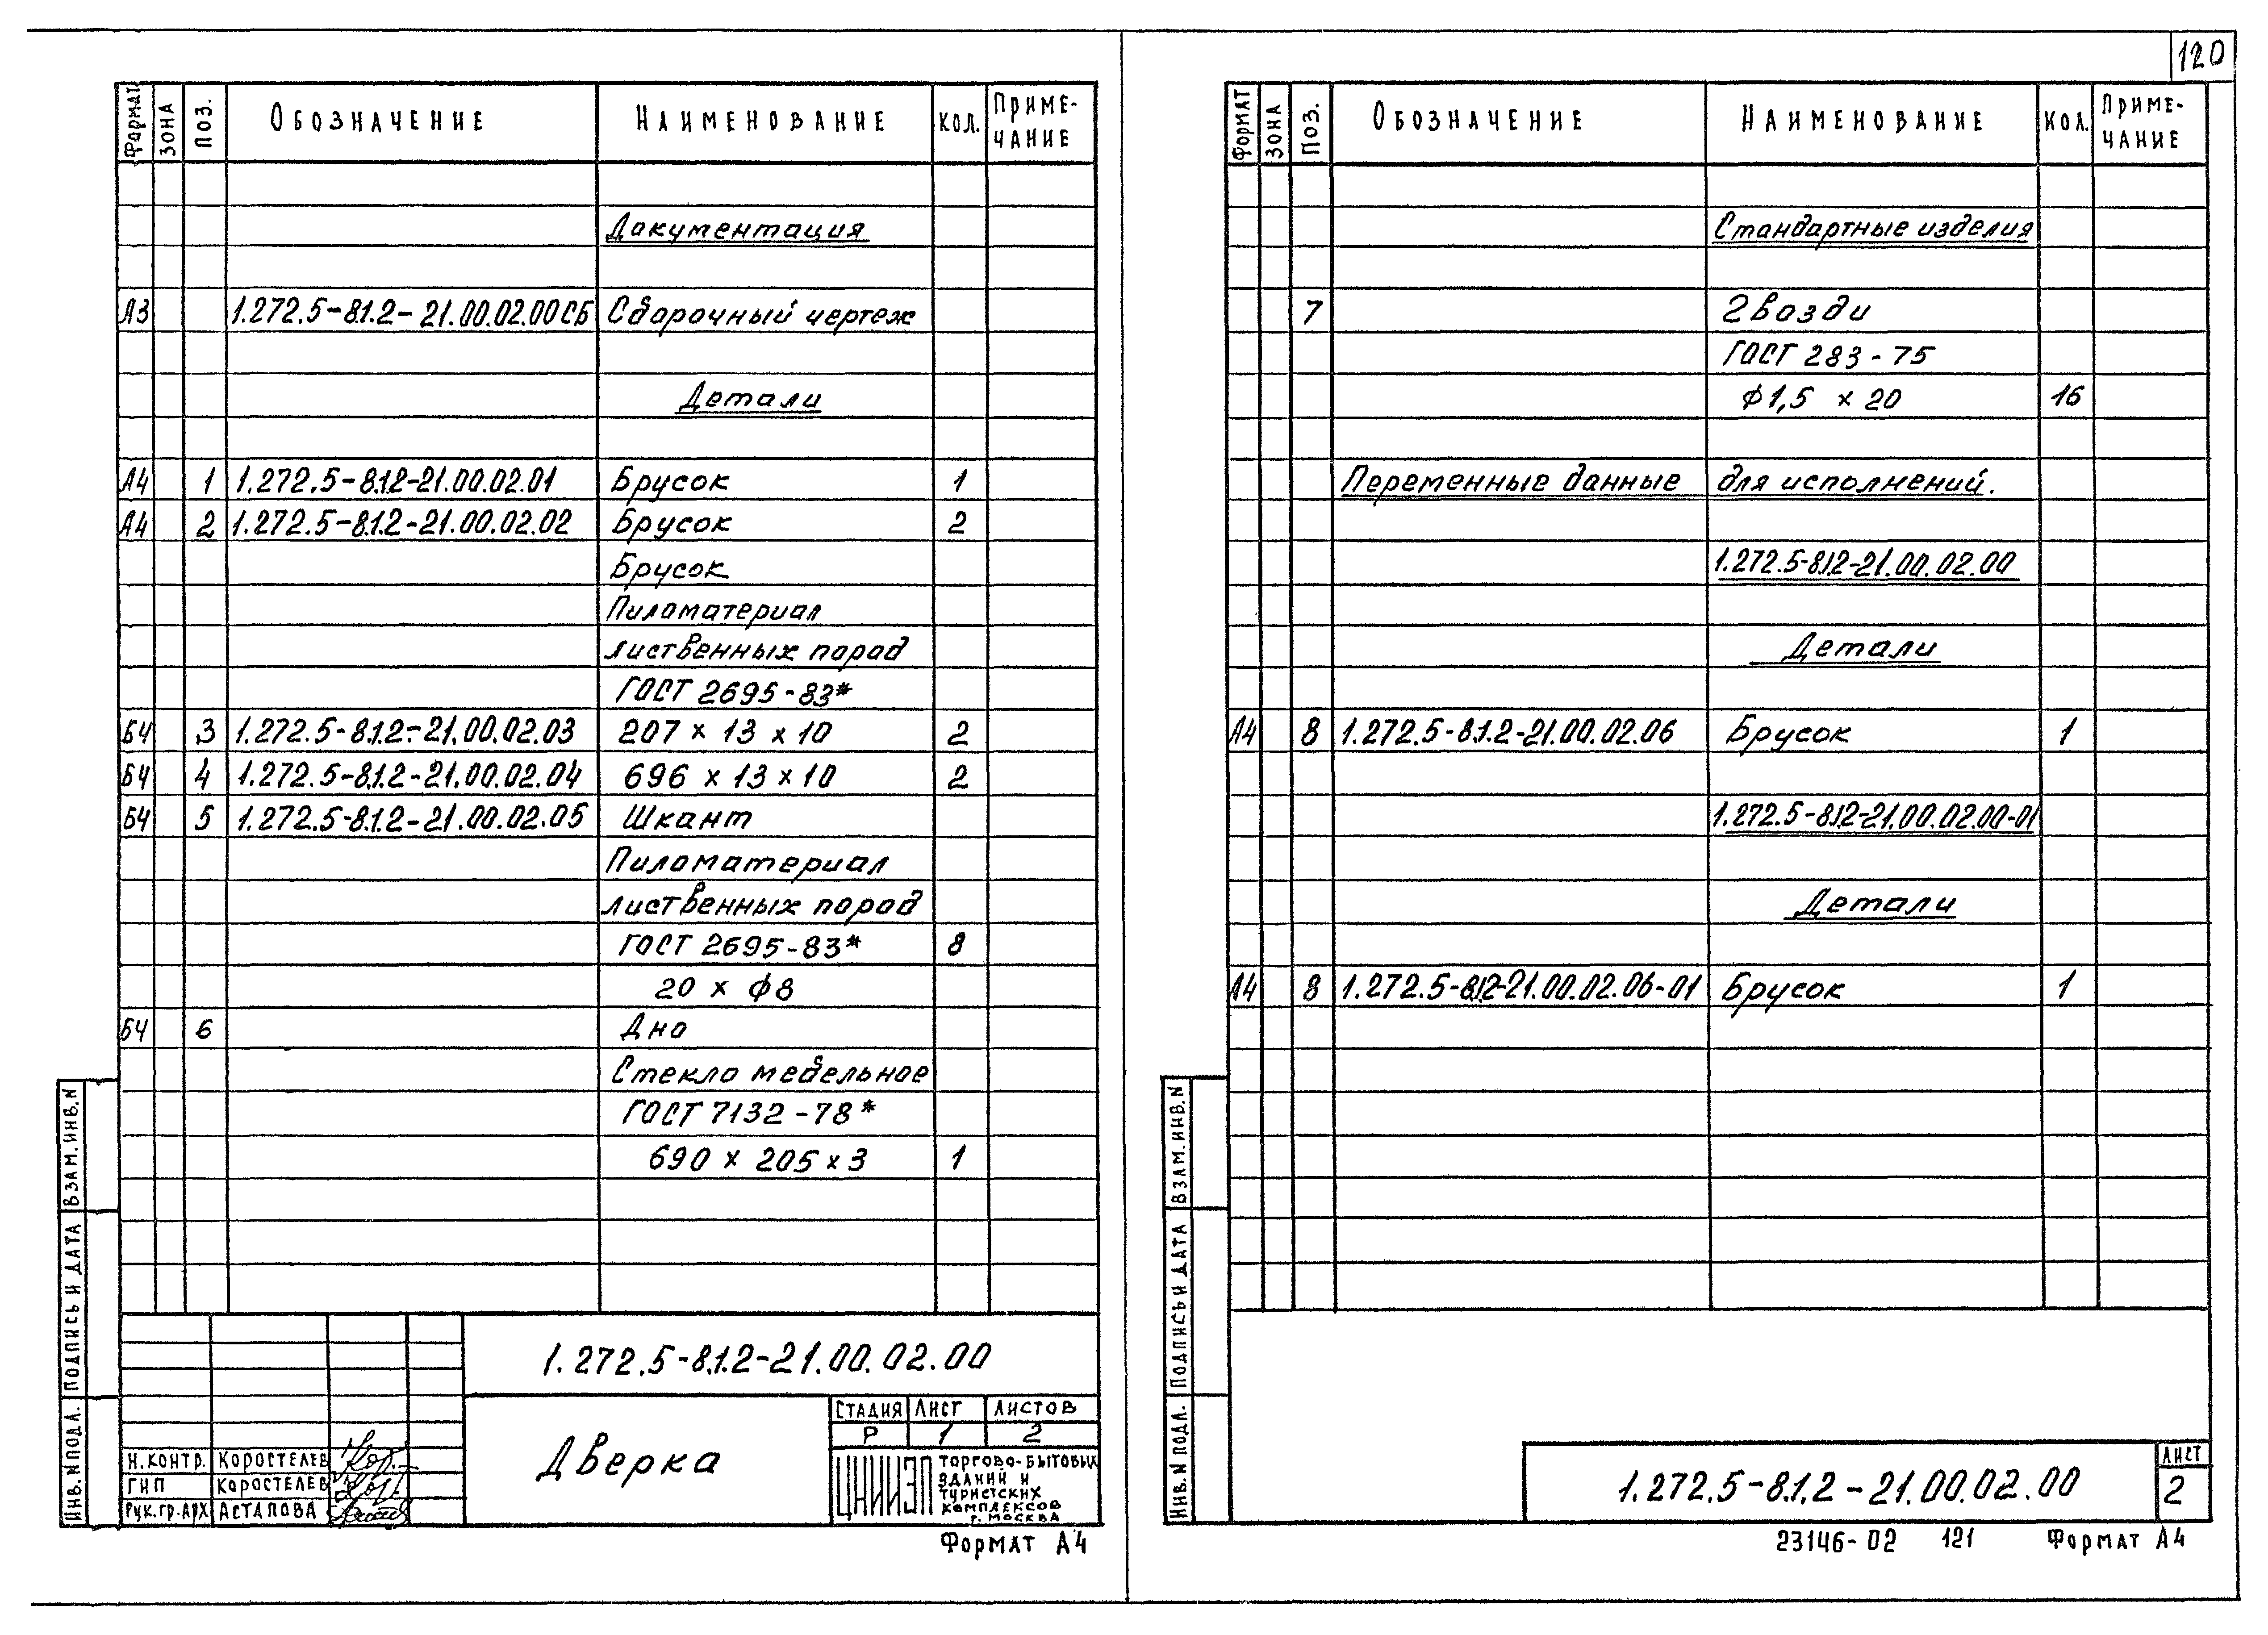 120
Формат Зона Поз. Обозначение Наименование Кол. Приме-
чание
Документация
А3 1.272.5-8.1.2-21.00.02.00СБ Сборочный чертеж
Детали
А4 1 1.272.5-8.1.2-21.00.02.01 Брусок 1
А4 2 1.272.5-8.1.2-21.00.02.02 Брусок 2
Брусок
Пиломатериал
лиственных пород
ГОСТ 2695-83*
БЧ 3 1.272.5-8.1.2-21.00.02.03 207 × 13 × 10 2
БЧ 4 1.272.5-8.1.2-21.00.02.04 696 × 13 × 10 2
БЧ 5 1.272.5-8.1.2-21.00.02.05 Шкант
Пиломатериал
лиственных пород
ГОСТ 2695-83* 8
20 × ф8
БЧ 6 Дно
Стекло мебельное
ГОСТ 7132-78*
690 × 205 × 3 1
Инв. N подл. Подпись и дата Взам. инв. N
1.272.5-8.1.2-21.00.02.00
Дверка
Стадия Лист Листов
Р 1 2
Н. контр. Коростелев
ГИП Коростелев
Рук. гр. арх Астапова
ЦНИИЭП торгово-бытовых
зданий и
туристских
комплексов
г. Москва
Формат А4
Формат Зона Поз. Обозначение Наименование Кол. Приме-
чание
Стандартные изделия
7 Гвозди
ГОСТ 283-75
ф1,5 × 20 16
Переменные данные для исполнений.
1.272.5-8.1.2-21.00.02.00
Детали
А4 8 1.272.5-8.1.2-21.00.02.06 Брусок 1
1.272.5-8.1.2-21.00.02.00-01
Детали
А4 8 1.272.5-8.1.2-21.00.02.06-01 Брусок 1
Инв. N подл. Подпись и дата Взам. инв. N
1.272.5-8.1.2-21.00.02.00
Лист
2
23146-02 121 Формат А4